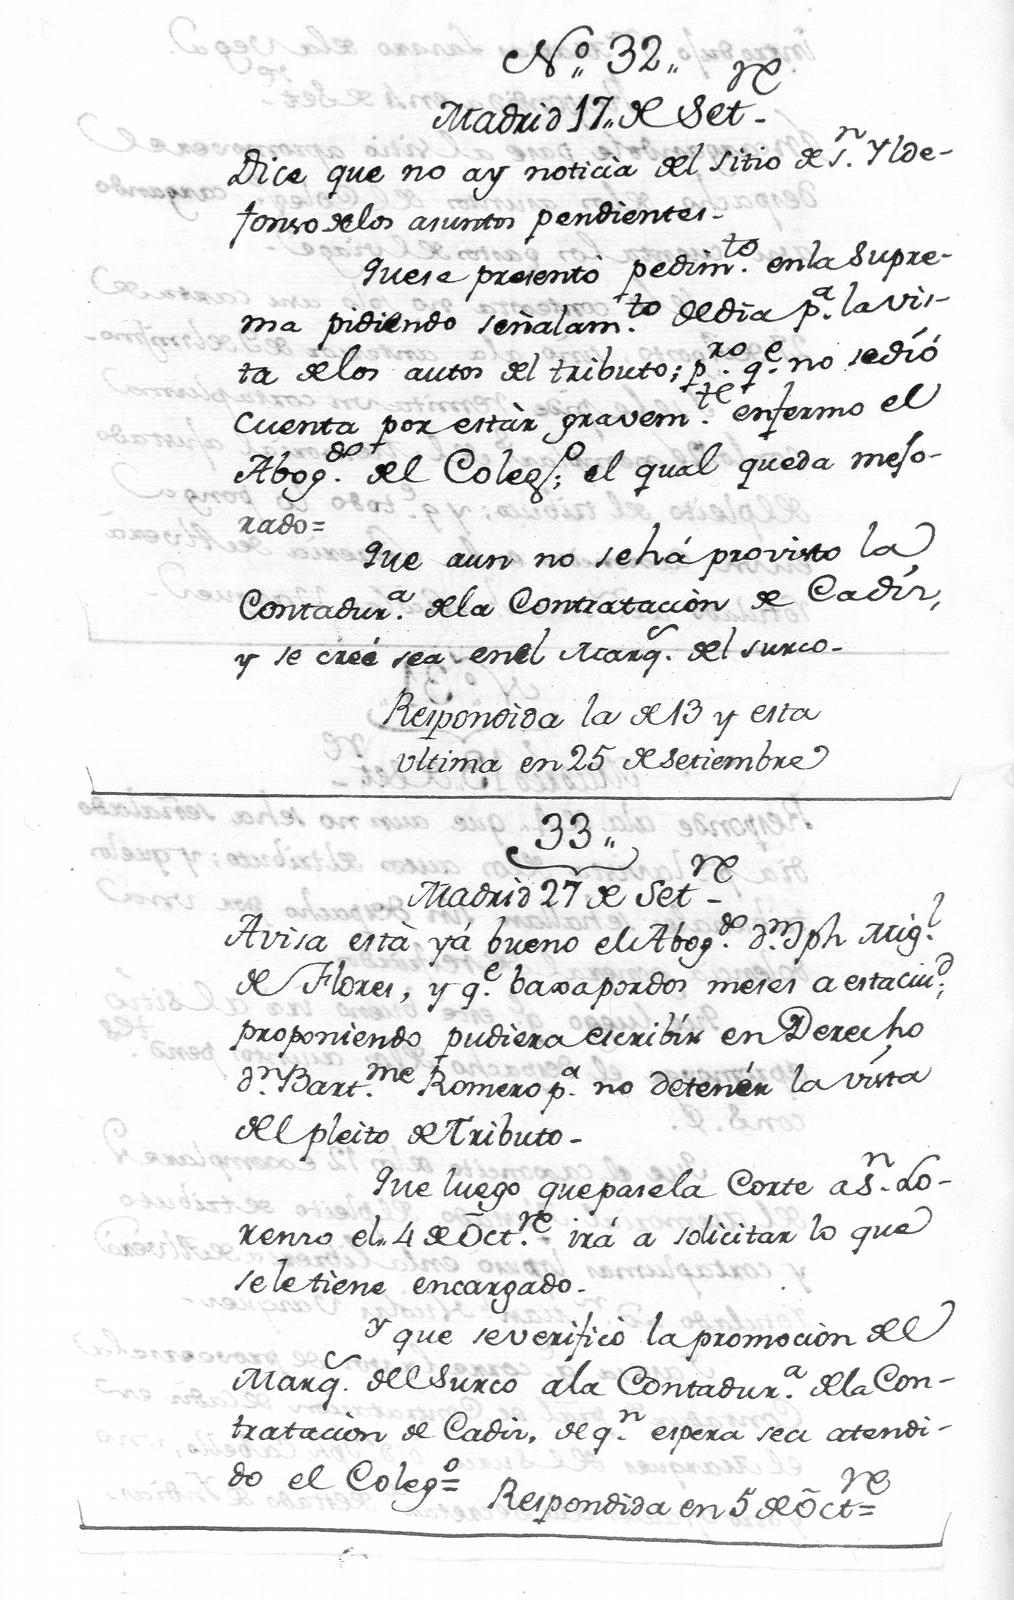 Nº 32„
Madrid 17„ de Setre-
Dice que no ay noticia del sitio de Sn. Ylde-
fonso delos asuntos pendientes-
Quese presentó pedimto. enla Supre-
ma pidiendo señalamto. dedia pa. la vis-
ta delos autos del tributo; pro. qe. no sedió
cuenta por estàr gravemte. enfermo el
Abogdo. del Colego; el qual queda mejo-
rado=
Que aun no sehá provisto la
Contadura. dela Contratación de Cadíz,
y se creé sea enel Marqs. del Surco-
Respondida la de 13 y esta
vltima en 25 de Setiembre
33„
Madrid 27 de Setre-
Avisa està yá bueno el Abogdo. dn. Jph Migl.
de Flores, y qe. baxa pordos meses a estaciud.;
proponiendo pudiera escribír en Derecho
dn. Bartme. Romero pa. no detenér la vista
del pleito de Tributo-
Que luego quepasela Corte a Sn. Lo-
renzo el„ 4 de Octre. irá a solicitar lo que
sele tiene encargado-
y que severificó la promoción del
Marqs. del Surco ala Contadura. dela Con-
tratación de Cadiz, de qn. espera sea atendi-
do el Colego=
Respondida en 5 de Octre=